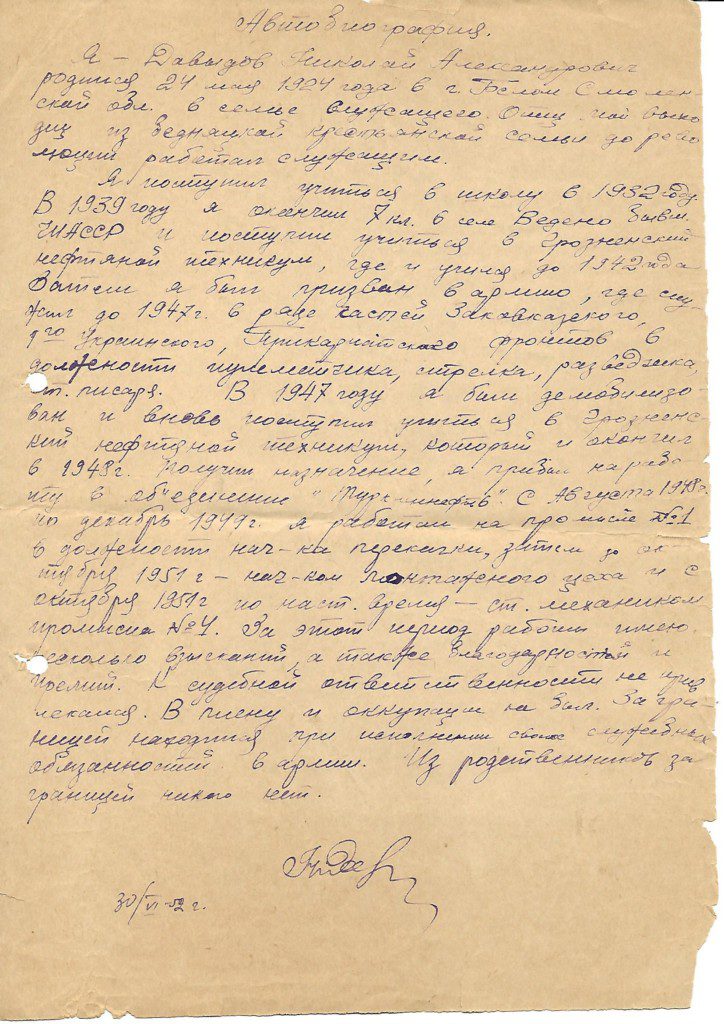 Автобиография.
Я – Давыдов Николай Александрович
родился 24 мая 1924 года в г. Белом Смолен-
ской обл. в семье служащего. Отец мой выхо-
дец из бедняцкой крестьянской семьи до рево
люции работал служащим.
Я поступил учиться в школу в 1932 году.
В 1939 году я окончил 7 кл. в селе Ведено бывш.
ЧИАССР и поступил учиться в Грозненский
нефтяной техникум, где и учился до 1942 года
Затем я был призван в армию, где слу-
жил до 1947 г. в ряде частей Закавказского,
Украинского, Прикарпатского фронтов в
должности пулеметчика, стрелка, разведчика,
ст. писаря. В 1947 году я был демобилизо-
ван и вновь поступил учиться в Грозненс-
кий нефтяной техникум, который и окончил
в 1948 г. Получив назначение, я прибыл на рабо
ту в объединение "Туркменнефть". С Августа 1948 г.
по декабрь 1949 г. я работал на промысле №1
в должности нач-ка перекачки, затем до ок-
тября 1951 г – нач-ком монтажного цеха и с
октября 1951 г по наст. время – ст. механиком
промысла №4. За этот период работы имею
несколько взысканий, а также благодарностей и
премий. К судебной ответственности не прив
лекался. В плену и оккупации не был. За гра-
ницей находился при исполнении своих служебных
обязанностей в армии. Из родственников за
границей никого нет.
30/VI-52 г.